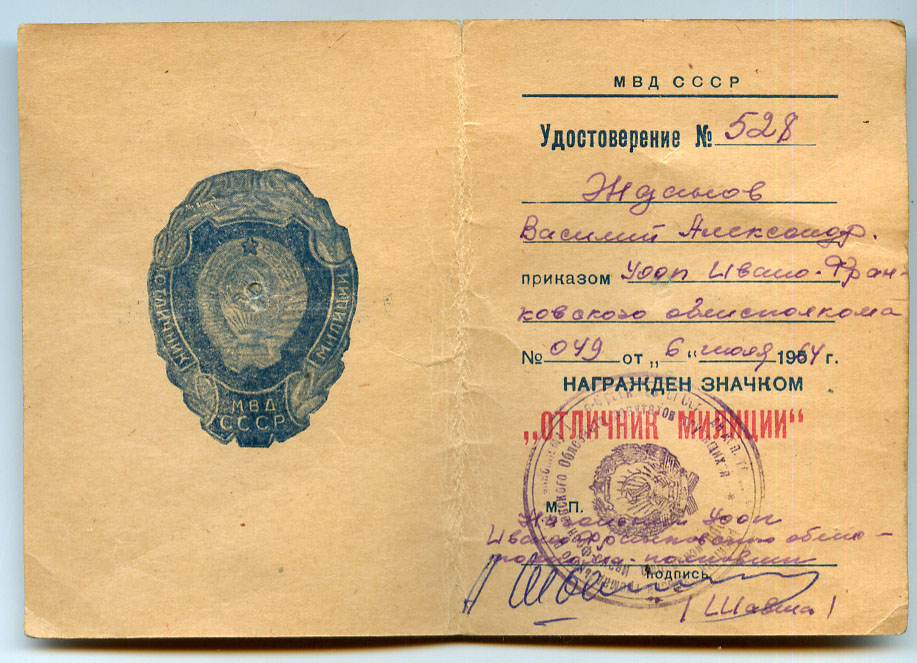 ОТЛИЧНИК МИЛИЦИИ
МВД
СССР
МВД СССР
Удостоверение № 528
Жданов
Василий Александр.
приказом Уооп Ивано-Фран-
ковского облисполкома
№ 049 от „ 6 “ июля 1964 г.
НАГРАЖДЕН ЗНАЧКОМ
„ОТЛИЧНИК МИЛИЦИИ“
М. П.
Начальник Уооп
Ивано-Франковского облис-
полкома - полковник
подпись
(Шавша)